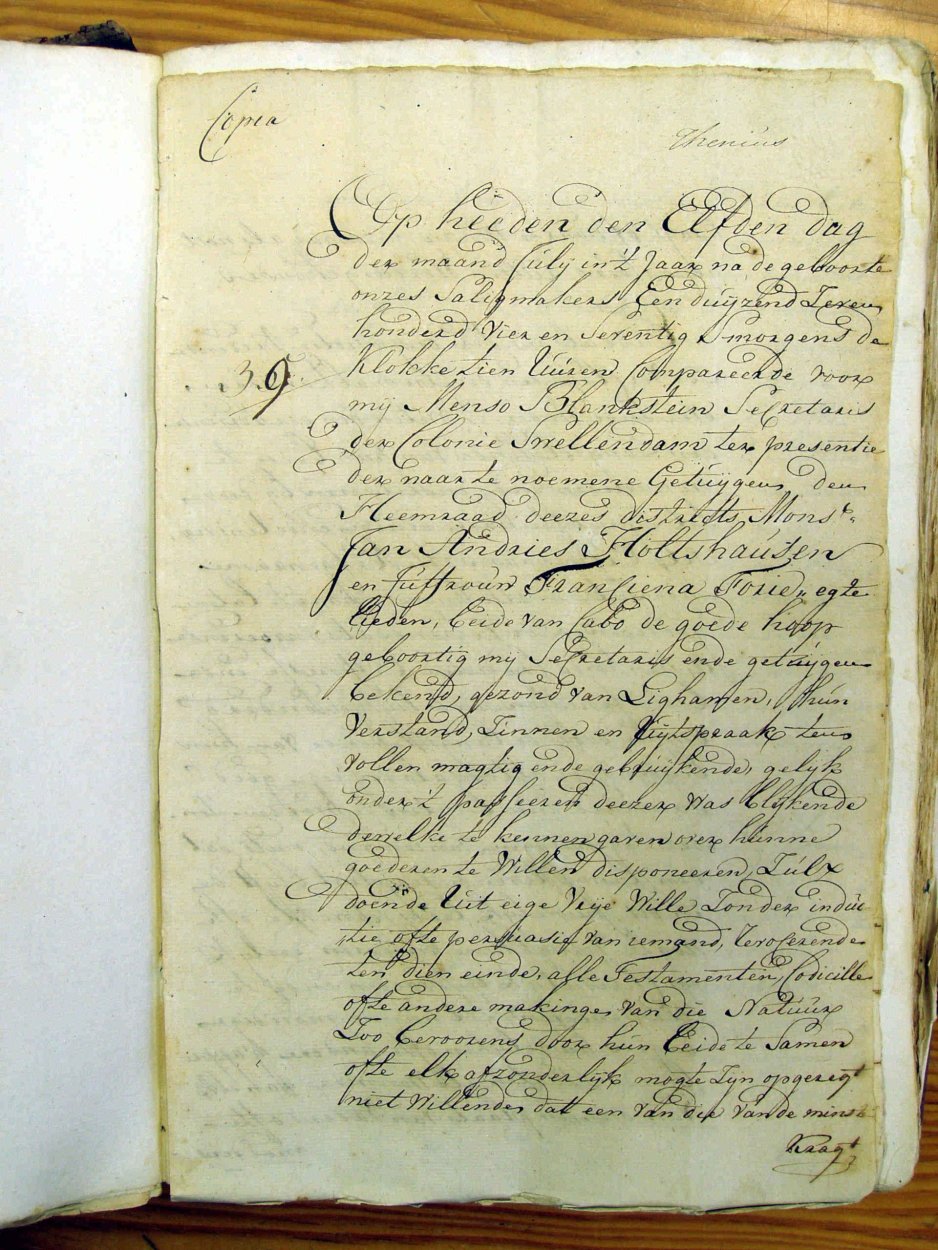 Copia
Thenius
Op heeden den Elfden dag
der maand Julij in 't Jaar na de geboorte
onzes Saligmakers Een duijzend Zeven
honderd Vier en Seventig Smorgens de
Klokke tien Uuren Compareerde voor
3.9.
mij Menso Blankstein Secretaris
der Colonie Swellendam ter presentie
der naar te noemene Getuijgen den
Heemraad deezes districts, Monsr.
Jan Andries Holtshausen
en Juffrouw Franciena Forie,, egte
lieden, beide van Cabo de goede hoop
geboortig mij Secretaris ende getuijgen
bekend, gezond van Lighamen, hun
Verstand, Zinnen en Uijtspraak ten
vollen magtig ende gebruijkende, gelijk
onder 't passeeren deezer was blijkende
dewelke te kennen gaven over hunne
goederen te Willen disponeeren, Zulx
doende Uit eige Vrije Wille Zonder induc-
tie ofte persuasie van iemand, Revoceerende
ten dien einde, alle Testamenten, Codicille
ofte andere makinge, van die Natuur
Zoo bevoorens door hun beide te Samen
ofte elk afzonderlijk mogte Zijn opgeregt
niet Willende dat een van die van de minste
Kragt